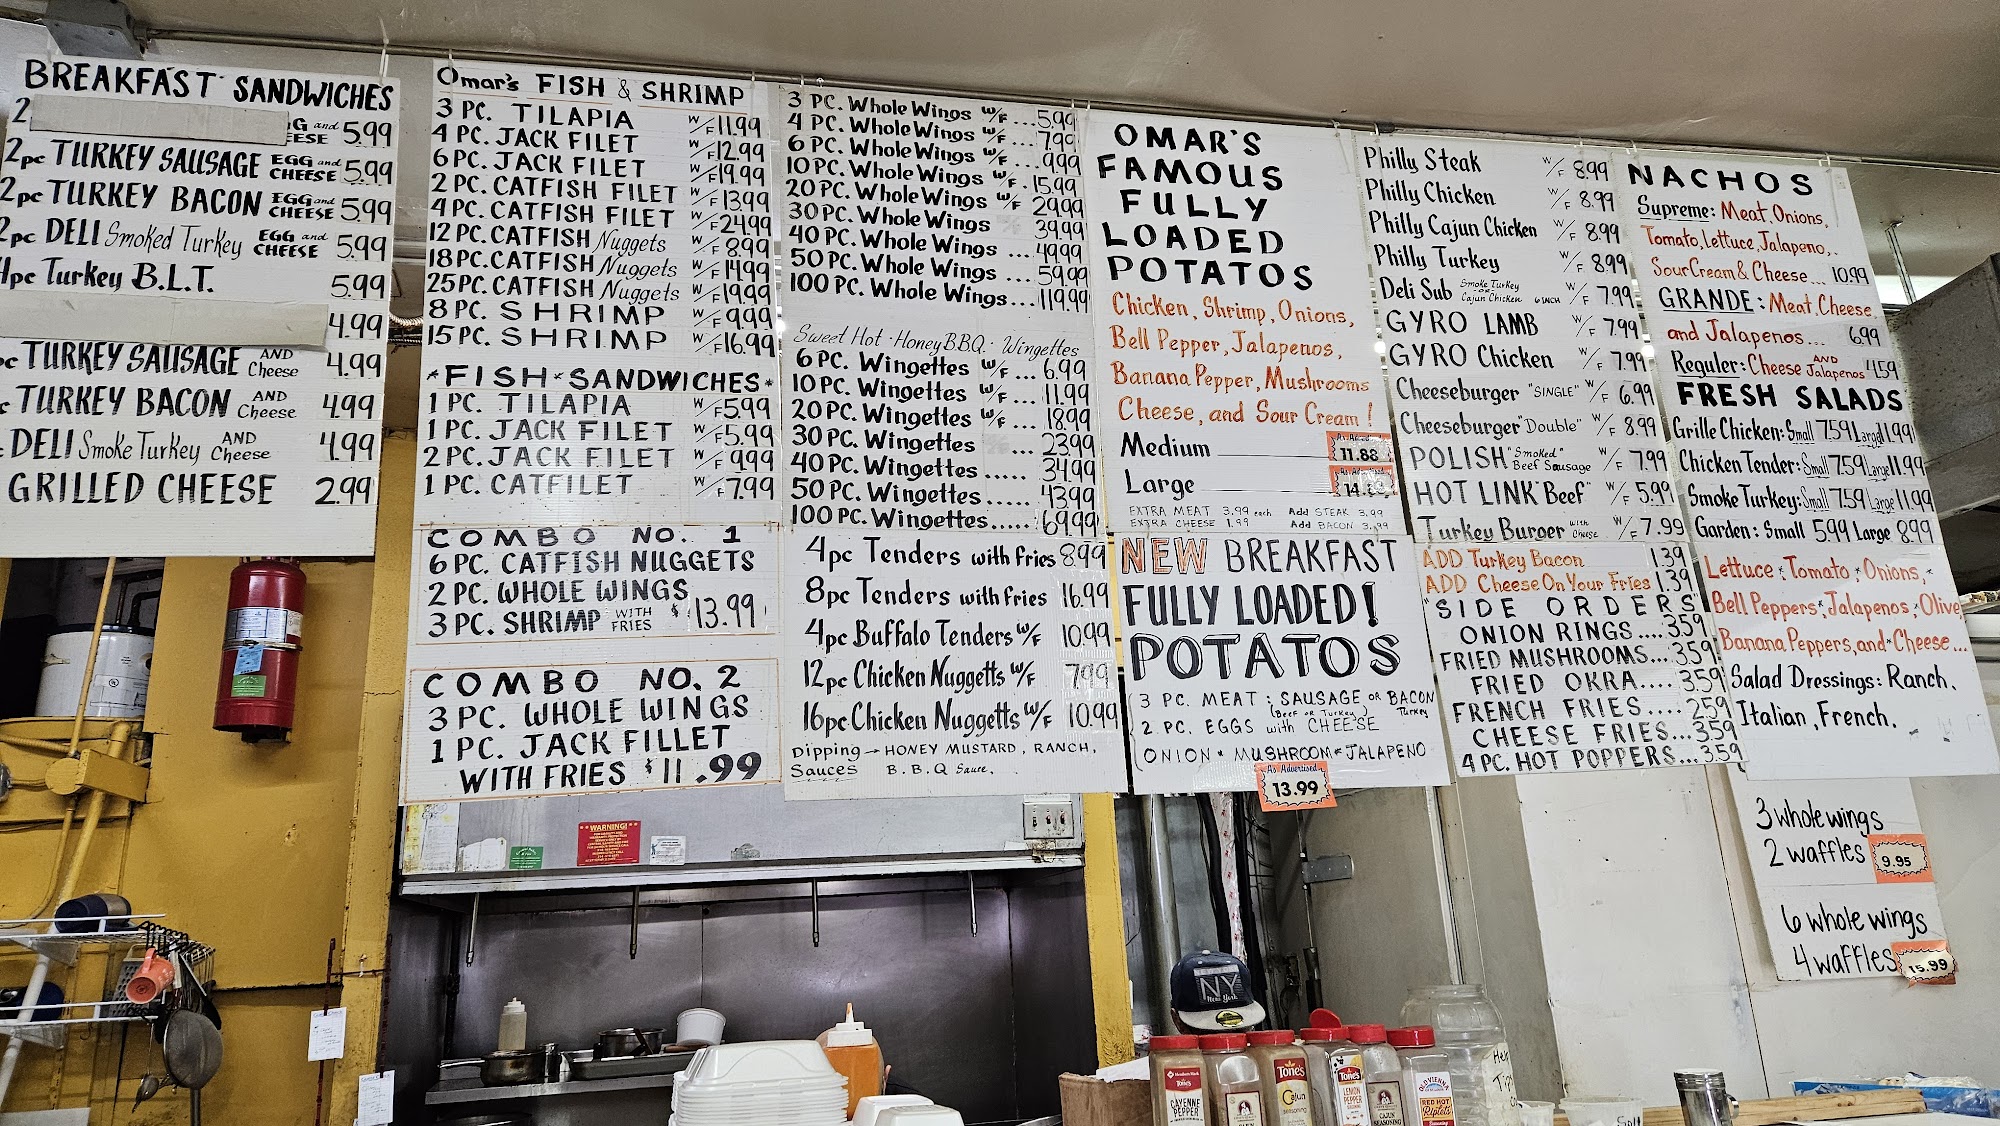 BREAKFAST SANDWICHES
2
and
EESE 5.99
2pc TURKEY SAUSAGE EGG and CHEESE 5.99
2pc TURKEY BACON EGG and CHEESE 5.99
2pc DELI Smoked Turkey EGG and CHEESE 5.99
4pc Turkey B.L.T. 5.99
4.99
TURKEY SAUSAGE AND Cheese 4.99
TURKEY BACON AND Cheese 4.99
DELI Smoke Turkey AND Cheese 4.99
GRILLED CHEESE 2.99
Omar's FISH & SHRIMP
3 PC. TILAPIA W/F 11.99
4 PC. JACK FILET W/F 12.99
6 PC. JACK FILET W/F 19.99
2 PC. CATFISH FILET W/F 13.99
4 PC. CATFISH FILET W/F 24.99
12 PC. CATFISH Nuggets W/F 8.99
18 PC. CATFISH Nuggets W/F 14.99
25 PC. CATFISH Nuggets W/F 19.99
8 PC. SHRIMP W/F 9.99
15 PC. SHRIMP W/F 16.99
*FISH*SANDWICHES*
1 PC. TILAPIA W/F 5.99
1 PC. JACK FILET W/F 5.99
2 PC. JACK FILET W/F 9.99
1 PC. CATFILET W/F 7.99
COMBO NO. 1
6 PC. CATFISH NUGGETS
2 PC. WHOLE WINGS
3 PC. SHRIMP WITH FRIES $13.99
COMBO NO. 2
3 PC. WHOLE WINGS
1 PC. JACK FILLET
WITH FRIES $11.99
3 PC. Whole Wings W/F ... 5.99
4 PC. Whole Wings W/F ... 7.99
6 PC. Whole Wings W/F ... 9.99
10 PC. Whole Wings W/F . 15.99
20 PC. Whole Wings W/F . 29.99
30 PC. Whole Wings 39.99
40 PC. Whole Wings ... 49.99
50 PC. Whole Wings ... 59.99
100 PC. Whole Wings ... 119.99
Sweet Hot · Honey B.B.Q. · Wingettes
6 PC. Wingettes W/F ... 6.99
10 PC. Wingettes W/F ... 11.99
20 PC. Wingettes W/F ... 18.99
30 PC. Wingettes ... 23.99
40 PC. Wingettes ..... 34.99
50 PC. Wingettes ..... 43.99
100 PC. Wingettes ..... 69.99
4pc Tenders with fries 8.99
8pc Tenders with fries 16.99
4pc Buffalo Tenders W/F 10.99
12pc Chicken Nuggetts W/F 7.99
16pc Chicken Nuggetts W/F 10.99
Dipping → HONEY MUSTARD, RANCH,
Sauces B.B.Q Sauce.
OMAR'S
FAMOUS
FULLY
LOADED
POTATOS
Chicken, Shrimp, Onions,
Bell Pepper, Jalapenos,
Banana Pepper, Mushrooms
Cheese, and Sour Cream!
Medium As Advertised 11.88
Large As Advertised
EXTRA MEAT 3.99 each Add STEAK 3.99
EXTRA CHEESE 1.99 Add BACON 3.99
NEW BREAKFAST
FULLY LOADED!
POTATOS
3 PC. MEAT: SAUSAGE OR BACON
(Beef or Turkey) Turkey
2 PC. EGGS with CHEESE
ONION * MUSHROOM * JALAPENO
As Advertised
13.99
Philly Steak W/F 8.99
Philly Chicken W/F 8.99
Philly Cajun Chicken W/F 8.99
Philly Turkey W/F 8.99
Deli Sub Smoke Turkey OR Cajun Chicken 6 INCH W/F 7.99
GYRO LAMB W/F 7.99
GYRO Chicken W/F 7.99
Cheeseburger "SINGLE" W/F 6.99
Cheeseburger "Double" W/F 8.99
POLISH "Smoked" Beef Sausage W/F 7.99
HOT LINK "Beef" W/F 5.99
Turkey Burger with Cheese W/F 7.99
ADD Turkey Bacon 1.39
ADD Cheese On Your Fries 1.39
"SIDE ORDERS"
ONION RINGS .... 3.59
FRIED MUSHROOMS... 3.59
FRIED OKRA.... 3.59
FRENCH FRIES .... 2.59
CHEESE FRIES... 3.59
4 PC. HOT POPPERS... 3.59
NACHOS
Supreme: Meat, Onions,
Tomato, lettuce, Jalapeno,.
Sour Cream & Cheese... 10.99
GRANDE: Meat, Cheese,
and Jalapenos... 6.99
Reguler: Cheese AND Jalapenos 4.59
FRESH SALADS
Grille Chicken: Small 7.59 Large 11.99
Chicken Tender: Small 7.59 Large 11.99
Smoke Turkey: Small 7.59 Large 11.99
Garden: Small 5.99 Large 8.99
Lettuce * Tomato * Onions, *
Bell Peppers * Jalapenos * Olive
Banana Peppers, and * Cheese...
Salad Dressings: Ranch,
Italian, French.
3 whole wings
2 waffles 9.95
6 whole wings
4 waffles 15.99
WARNING!
NY
New York
TONE'S
CAYENNE PEPPER
TONE'S
Cajun
SEASONING
TONE'S
LEMON PEPPER
CAJUN SEASONING
OLD VIENNA
RED HOT
Riplets